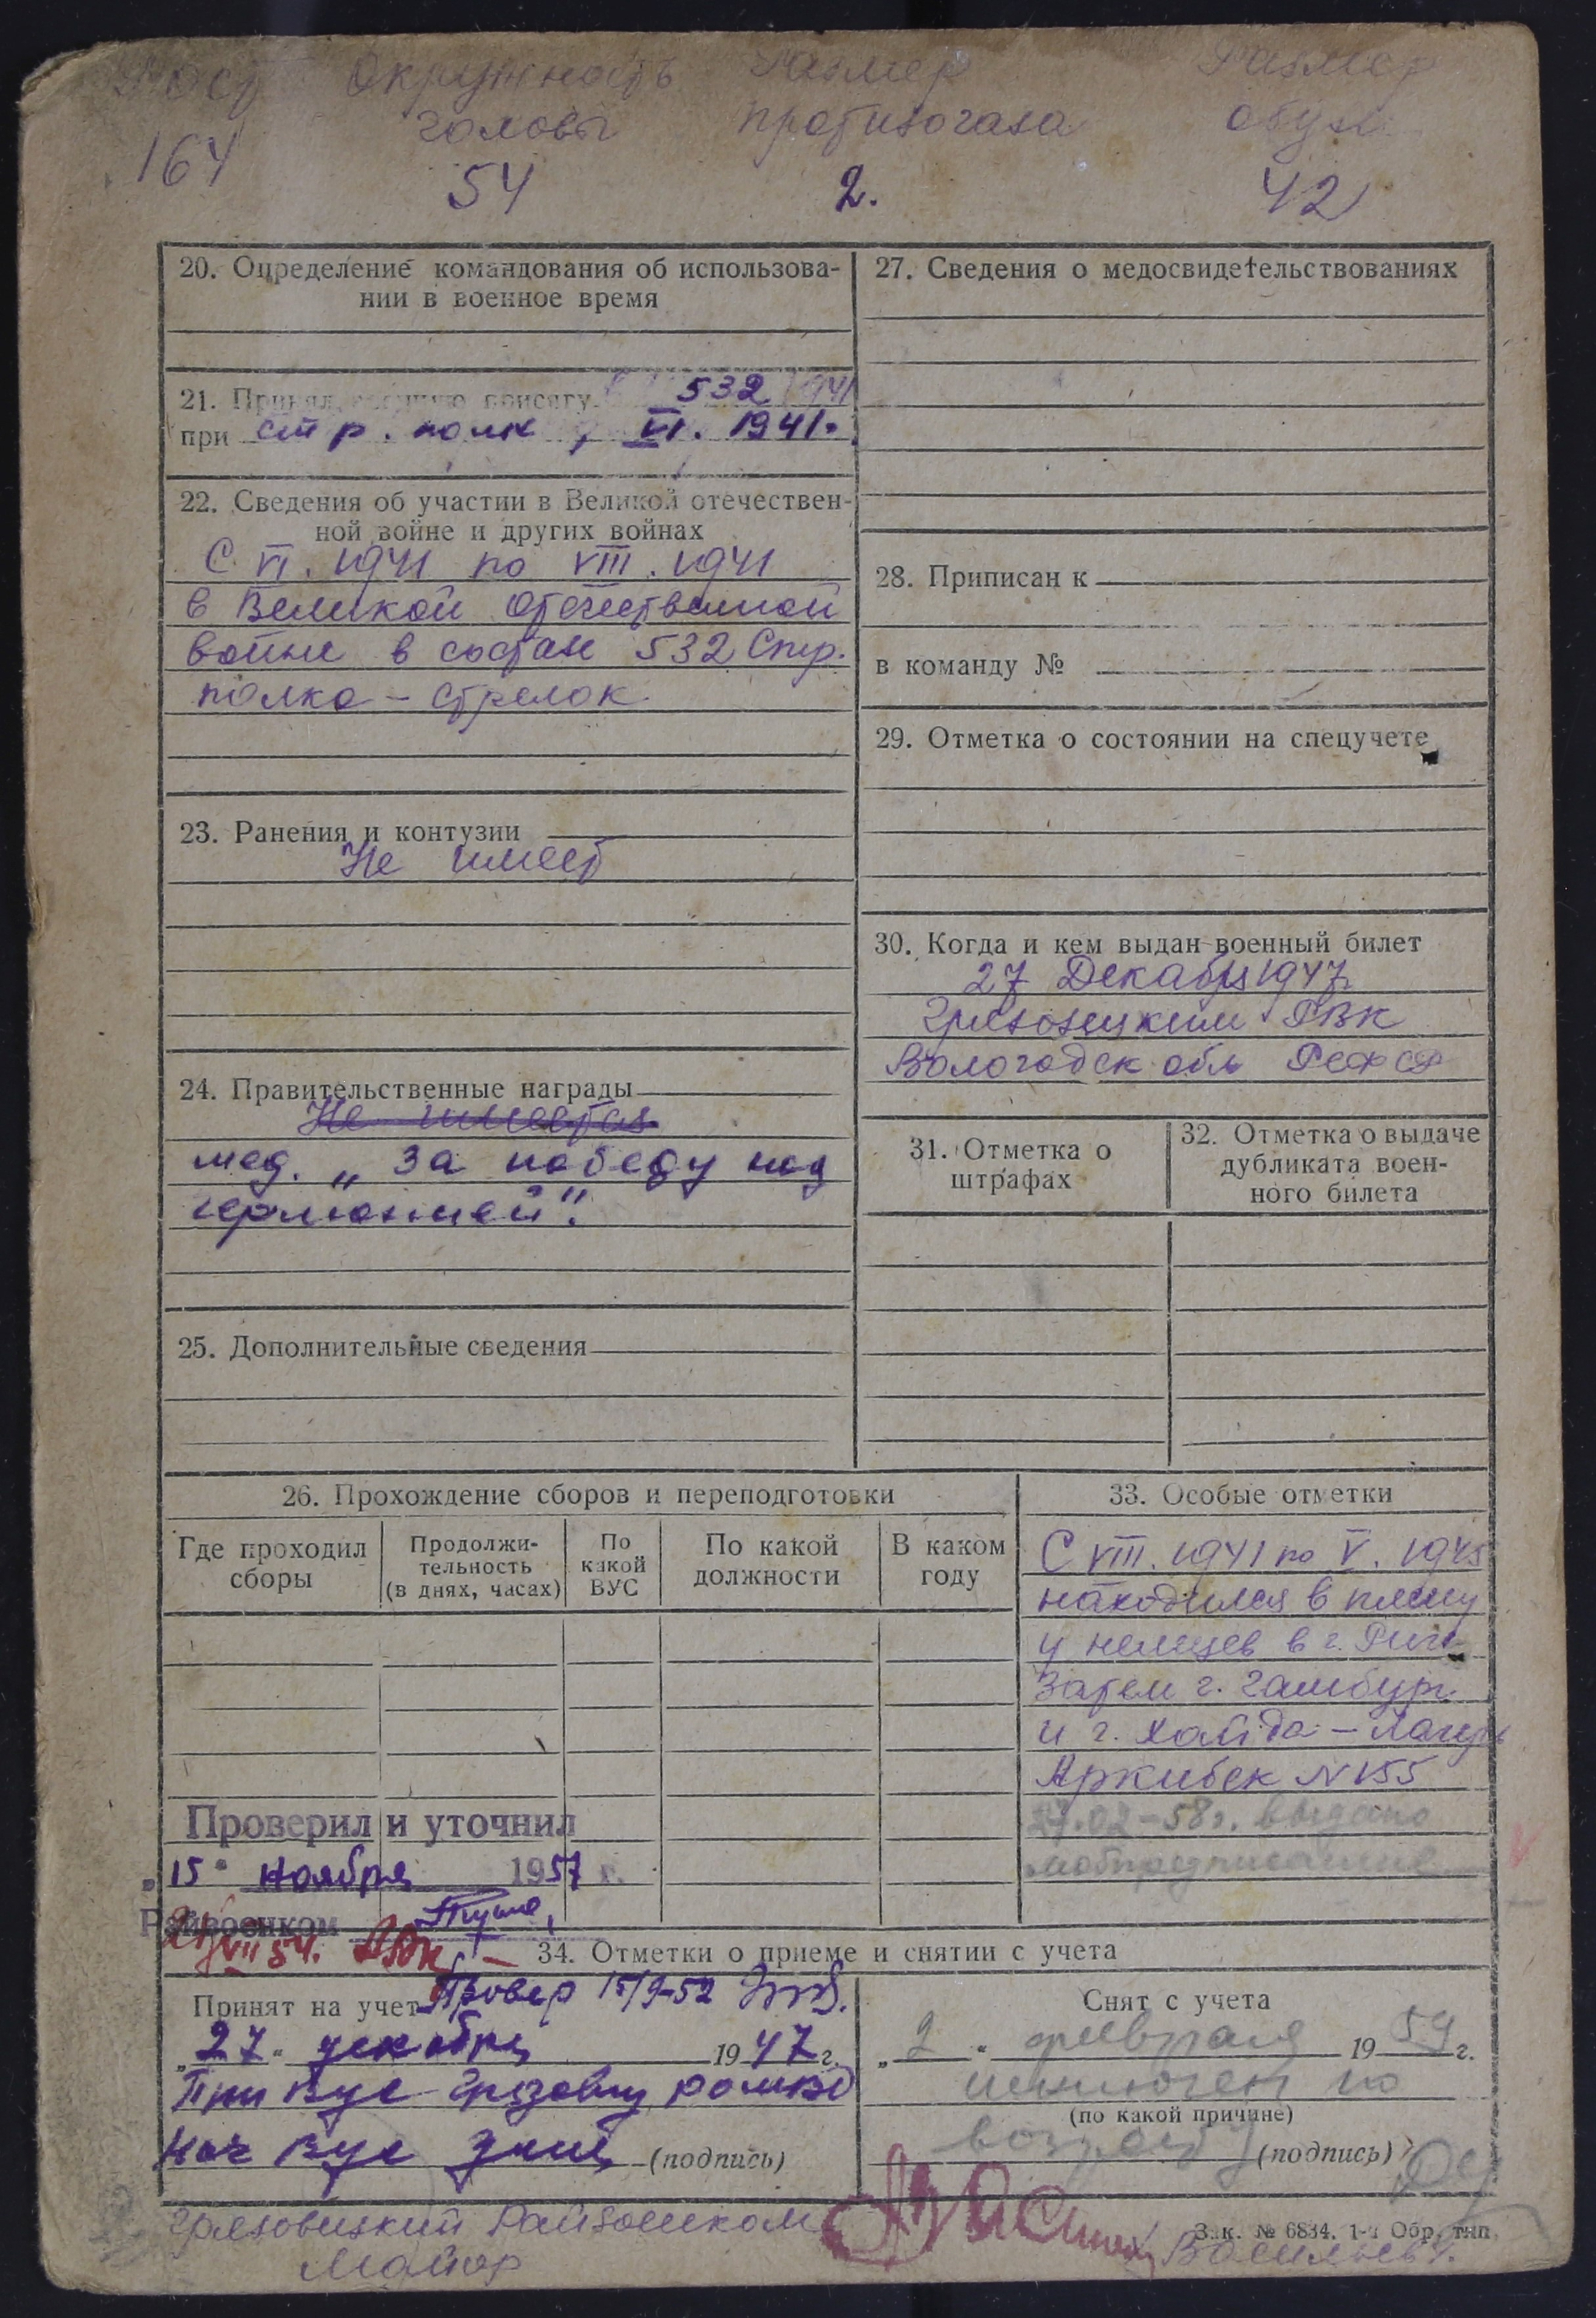 Рост Окружность Размер Размер
головы противогаза обуви
164 54 2. 42
20. Определение командования об использова-
нии в военное время
21. Принял военную присягу 532 1941
при стр. полк, VI. 1941.
22. Сведения об участии в Великой отечествен-
ной войне и других войнах
С VI. 1941 по VIII. 1941
в Великой Отечественной
войне в составе 532 Стр.
полка – стрелок
23. Ранения и контузии
Не имеет
24. Правительственные награды
Не имеется
мед. „За победу над
германией".
25. Дополнительные сведения
27. Сведения о медосвидетельствованиях
28. Приписан к
в команду №
29. Отметка о состоянии на спецучете
30. Когда и кем выдан военный билет
27 Декабря 1947
Грязовецким РВК
Вологодск обл РСФСР
31. Отметка о
штрафах
32. Отметка о выдаче
дубликата воен-
ного билета
26. Прохождение сборов и переподготовки
Где проходил
сборы
Продолжи-
тельность
(в днях, часах)
По
какой
ВУС
По какой
должности
В каком
году
33. Особые отметки
С VIII. 1941 по V. 1945
находился в плену
у немцев в г. Риге
Затем г. Гамбург
и г. Хайда – Лагерь
Аржибек N 155
27.02–58г. выдано
мобпредписание
Проверил и уточнил
„15" ноября 1957 г.
Райвоенком
VII 54.
34. Отметки о приеме и снятии с учета
Принят на учет Провер 15/9-52
„27" декабря 1947 г.
При вус Грязовец
Нач вус (подпись)
Снят с учета
„2" февраля 1959 г.
исключен по
(по какой причине)
возрасту (подпись)
Грязовецкий Райвоенком
Майор Васильев
Зак. № 6834. 1-я Обр. тип.